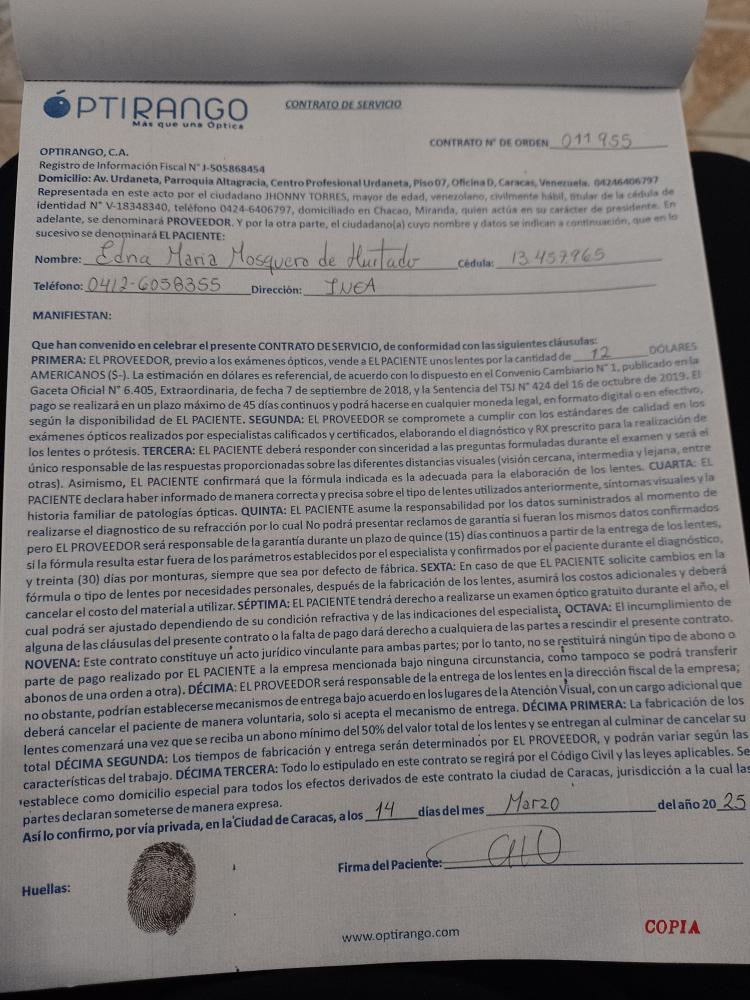 ÓPTIRANGO
Más que una Óptica
CONTRATO DE SERVICIO
CONTRATO N° DE ORDEN 011955
OPTIRANGO, C.A.
Registro de Información Fiscal N° J-505868454
Domicilio: Av. Urdaneta, Parroquia Altagracia, Centro Profesional Urdaneta, Piso 07, Oficina D, Caracas, Venezuela. 04246406797
Representada en este acto por el ciudadano JHONNY TORRES, mayor de edad, venezolano, civilmente hábil, titular de la cédula de
identidad N° V-18348340, teléfono 0424-6406797, domiciliado en Chacao, Miranda, quien actúa en su carácter de presidente. En
adelante, se denominará PROVEEDOR. Y por la otra parte, el ciudadano(a) cuyo nombre y datos se indican a continuación, que en lo
sucesivo se denominará EL PACIENTE:
Nombre: Edna Maria Mosquero de Hurtado Cédula: 13.457.965
Teléfono: 0412-6058355 Dirección: INEA
MANIFIESTAN:
Que han convenido en celebrar el presente CONTRATO DE SERVICIO, de conformidad con las siguientes cláusulas:
PRIMERA: EL PROVEEDOR, previo a los exámenes ópticos, vende a EL PACIENTE unos lentes por la cantidad de 12 DÓLARES
AMERICANOS ($-). La estimación en dólares es referencial, de acuerdo con lo dispuesto en el Convenio Cambiario N° 1, publicado en la
Gaceta Oficial N° 6.405, Extraordinaria, de fecha 7 de septiembre de 2018, y la Sentencia del TSJ N° 424 del 16 de octubre de 2019. El
pago se realizará en un plazo máximo de 45 días continuos y podrá hacerse en cualquier moneda legal, en formato digital o en efectivo,
según la disponibilidad de EL PACIENTE. SEGUNDA: EL PROVEEDOR se compromete a cumplir con los estándares de calidad en los
exámenes ópticos realizados por especialistas calificados y certificados, elaborando el diagnóstico y RX prescrito para la realización de
los lentes o prótesis. TERCERA: EL PACIENTE deberá responder con sinceridad a las preguntas formuladas durante el examen y será el
único responsable de las respuestas proporcionadas sobre las diferentes distancias visuales (visión cercana, intermedia y lejana, entre
otras). Asimismo, EL PACIENTE confirmará que la fórmula indicada es la adecuada para la elaboración de los lentes. CUARTA: EL
PACIENTE declara haber informado de manera correcta y precisa sobre el tipo de lentes utilizados anteriormente, síntomas visuales y la
historia familiar de patologías ópticas. QUINTA: EL PACIENTE asume la responsabilidad por los datos suministrados al momento de
realizarse el diagnostico de su refracción por lo cual No podrá presentar reclamos de garantía si fueran los mismos datos confirmados
pero EL PROVEEDOR será responsable de la garantía durante un plazo de quince (15) días continuos a partir de la entrega de los lentes,
si la fórmula resulta estar fuera de los parámetros establecidos por el especialista y confirmados por el paciente durante el diagnóstico,
y treinta (30) días por monturas, siempre que sea por defecto de fábrica. SEXTA: En caso de que EL PACIENTE solicite cambios en la
fórmula o tipo de lentes por necesidades personales, después de la fabricación de los lentes, asumirá los costos adicionales y deberá
cancelar el costo del material a utilizar. SÉPTIMA: EL PACIENTE tendrá derecho a realizarse un examen óptico gratuito durante el año, el
cual podrá ser ajustado dependiendo de su condición refractiva y de las indicaciones del especialista. OCTAVA: El incumplimiento de
alguna de las cláusulas del presente contrato o la falta de pago dará derecho a cualquiera de las partes a rescindir el presente contrato.
NOVENA: Este contrato constituye un acto jurídico vinculante para ambas partes; por lo tanto, no se restituirá ningún tipo de abono o
parte de pago realizado por EL PACIENTE a la empresa mencionada bajo ninguna circunstancia, como tampoco se podrá transferir
abonos de una orden a otra). DÉCIMA: EL PROVEEDOR será responsable de la entrega de los lentes en la dirección fiscal de la empresa;
no obstante, podrían establecerse mecanismos de entrega bajo acuerdo en los lugares de la Atención Visual, con un cargo adicional que
deberá cancelar el paciente de manera voluntaria, solo si acepta el mecanismo de entrega. DÉCIMA PRIMERA: La fabricación de los
lentes comenzará una vez que se reciba un abono mínimo del 50% del valor total de los lentes y se entregan al culminar de cancelar su
total DÉCIMA SEGUNDA: Los tiempos de fabricación y entrega serán determinados por EL PROVEEDOR, y podrán variar según las
características del trabajo. DÉCIMA TERCERA: Todo lo estipulado en este contrato se regirá por el Código Civil y las leyes aplicables. Se
establece como domicilio especial para todos los efectos derivados de este contrato la ciudad de Caracas, jurisdicción a la cual las
partes declaran someterse de manera expresa.
Así lo confirmo, por vía privada, en la Ciudad de Caracas, a los 14 días del mes Marzo del año 2025
Firma del Paciente:
Huellas:
www.optirango.com
COPIA